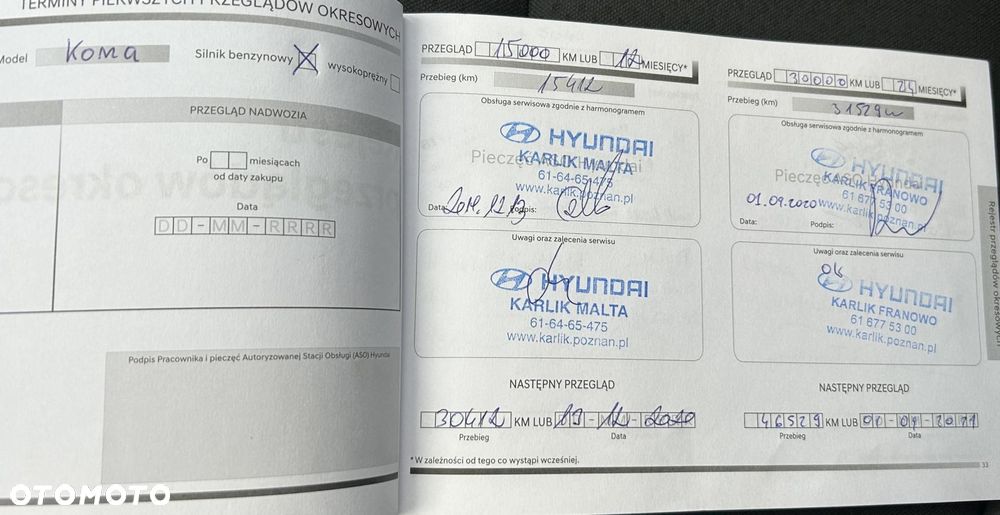 TERMINY PIERWSZYCH PRZEGLĄDÓW OKRESOWYCH
Model Kona
Silnik benzynowy X wysokoprężny
PRZEGLĄD NADWOZIA
Po miesiącach
od daty zakupu
Data
DD-MM-RRRR
Podpis Pracownika i pieczęć Autoryzowanej Stacji Obsługi (ASO) Hyundai
OTOMOTO
PRZEGLĄD 15000 KM LUB 12 MIESIĘCY*
Przebieg (km) 15412
Obsługa serwisowa zgodnie z harmonogramem
Pieczęć ASO Hyundai
HYUNDAI
KARLIK MALTA
61-64-65-475
www.karlik.poznan.pl
Data: Podpis:
Uwagi oraz zalecenia serwisu
HYUNDAI
KARLIK MALTA
61-64-65-475
www.karlik.poznan.pl
NASTĘPNY PRZEGLĄD
30412 KM LUB 13-12-2020
Przebieg Data
*W zależności od tego co wystąpi wcześniej.
PRZEGLĄD 30000 KM LUB 24 MIESIĘCY*
Przebieg (km) 31529
Obsługa serwisowa zgodnie z harmonogramem
Pieczęć ASO Hyundai
HYUNDAI
KARLIK FRANOWO
61 677 53 00
www.karlik.poznan.pl
01.09.2020
Data: Podpis:
Uwagi oraz zalecenia serwisu
ok
HYUNDAI
KARLIK FRANOWO
61 677 53 00
www.karlik.poznan.pl
NASTĘPNY PRZEGLĄD
46529 KM LUB 01-09-2021
Przebieg Data
33
Rejestr przeglądów okresowych